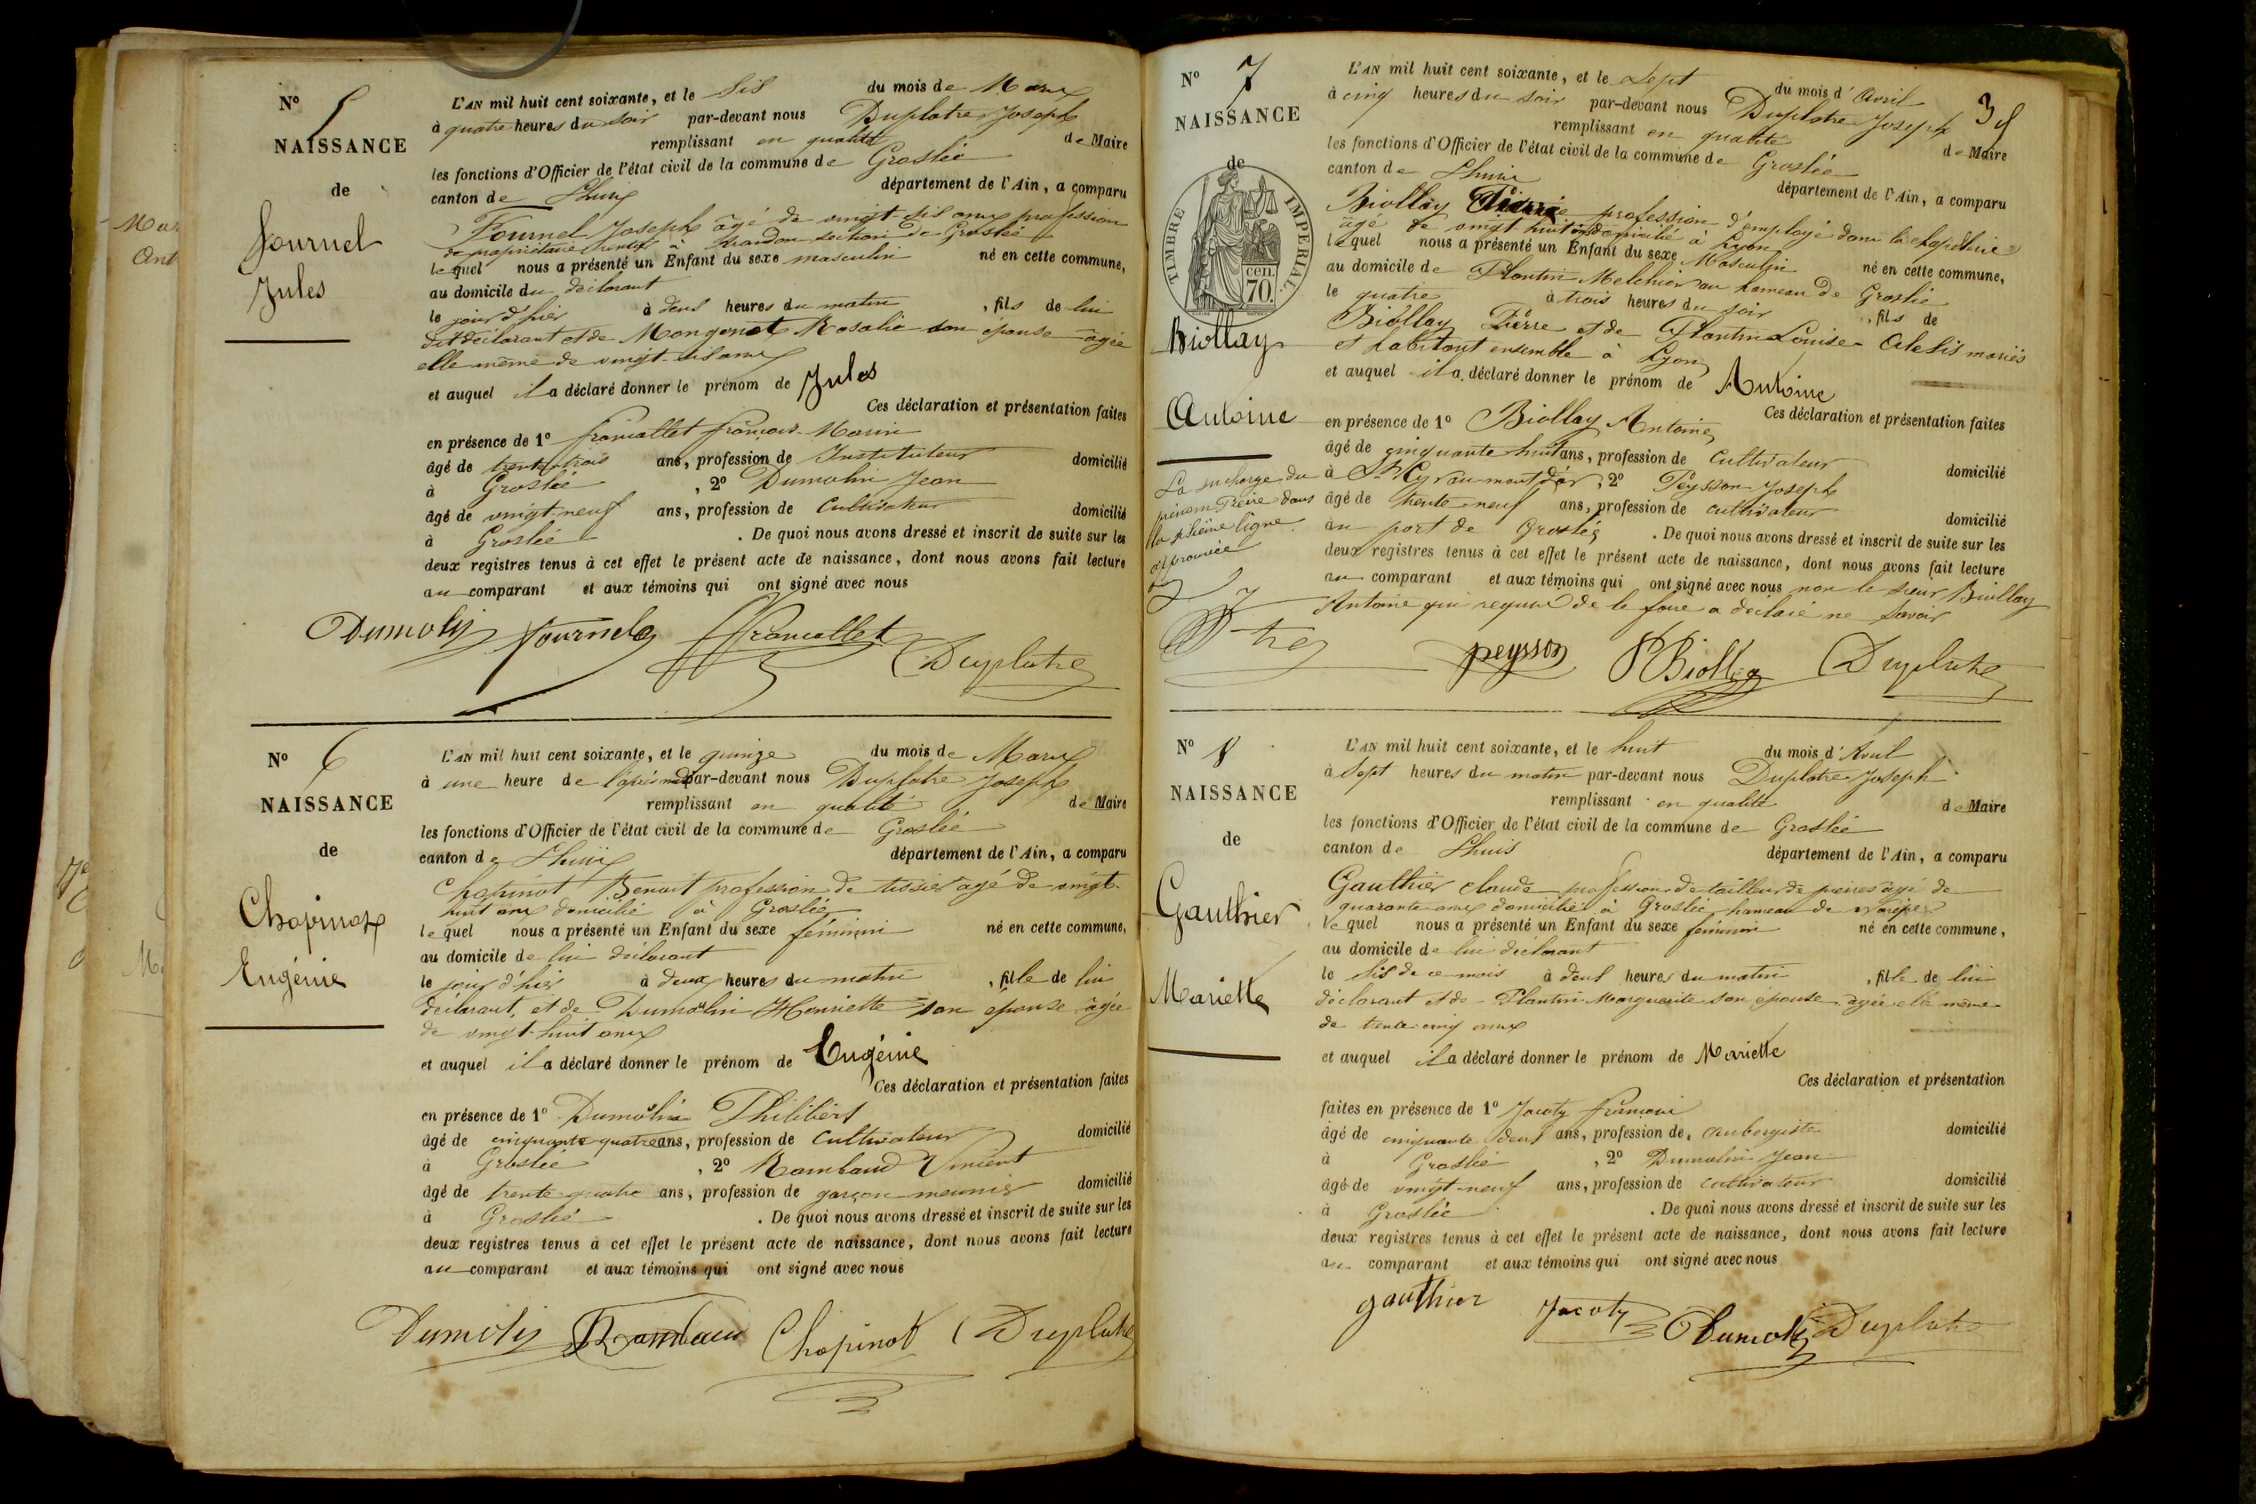 N° 5
NAISSANCE
de
Fournel
Jules
L'AN mil huit cent soixante, et le six du mois de Mars
à quatre heures du soir par-devant nous Duplatre Joseph
remplissant en qualité de Maire
les fonctions d'Officier de l'état civil de la commune de Groslée
canton de Lhuis département de l'Ain, a comparu
Fournel Joseph âgé de vingt six ans profession
de propriétaire rentier à section de Groslée
lequel nous a présenté un Enfant du sexe masculin né en cette commune,
au domicile du déclarant
le jour d'hier à deux heures du matin, fils de lui
dit déclarant et de Mongenot Rosalie son épouse âgée
elle même de vingt six ans
et auquel il a déclaré donner le prénom de Jules
Ces déclaration et présentation faites
en présence de 1° francallet françois Marin
âgé de trente trois ans, profession de Instituteur domicilié
à Groslée, 2° Dumolin Jean
âgé de vingt-neuf ans, profession de Cultivateur domicilié
à Groslée. De quoi nous avons dressé et inscrit de suite sur les
deux registres tenus à cet effet le présent acte de naissance, dont nous avons fait lecture
au comparant et aux témoins qui ont signé avec nous
Dumolin fournel francallet Duplatre
N° 6
NAISSANCE
de
Chapinot
Eugénie
L'AN mil huit cent soixante, et le quinze du mois de Mars
à une heure de l'après midi par-devant nous Duplatre Joseph
remplissant en qualité de Maire
les fonctions d'Officier de l'état civil de la commune de Groslée
canton de Lhuis département de l'Ain, a comparu
Chapinot Benoit profession de tissier âgé de vingt
huit ans domicilié à Groslée
lequel nous a présenté un Enfant du sexe féminin né en cette commune,
au domicile de lui déclarant
le jour d'hier à deux heures du matin, fille de lui
déclarant, et de Dumolin Henriette son épouse âgée
de vingt-huit ans
et auquel il a déclaré donner le prénom de Eugénie
Ces déclaration et présentation faites
en présence de 1° Dumolin Philibert
âgé de cinquante quatre ans, profession de Cultivateur domicilié
à Groslée, 2° Rambaud Vincent
âgé de trente quatre ans, profession de garçon meunier domicilié
à Groslée. De quoi nous avons dressé et inscrit de suite sur les
deux registres tenus à cet effet le présent acte de naissance, dont nous avons fait lecture
au comparant et aux témoins qui ont signé avec nous
Dumolin Rambaud Chapinot Duplatre
N° 7
NAISSANCE
de
TIMBRE IMPERIAL
70 cen.
Biollay
Antoine
La surcharge du
prénom Pierre dans
la ligne
approuvée
L'AN mil huit cent soixante, et le sept du mois d'Avril
à cinq heures du soir par-devant nous Duplatre Joseph
remplissant en qualité de Maire
les fonctions d'Officier de l'état civil de la commune de Groslée
canton de Lhuis département de l'Ain, a comparu
Biollay Pierre profession d'employé dans la chapellerie
âgé de vingt huit ans domicilié à Lyon
lequel nous a présenté un Enfant du sexe Masculin né en cette commune,
au domicile de Plantin Melchior au hameau de Groslée
le quatre à trois heures du soir, fils de
Biollay Pierre et de Plantin Louise mariés
et habitant ensemble à Lyon
et auquel il a déclaré donner le prénom de Antoine
Ces déclaration et présentation faites
en présence de 1° Biollay Antoine
âgé de cinquante huit ans, profession de Cultivateur domicilié
à St Cyr au mont d'or, 2° Peysson Joseph
âgé de trente-neuf ans, profession de cultivateur domicilié
au port de Groslée. De quoi nous avons dressé et inscrit de suite sur les
deux registres tenus à cet effet le présent acte de naissance, dont nous avons fait lecture
au comparant et aux témoins qui ont signé avec nous non le sieur Biollay
Antoine qui requis de le faire a déclaré ne savoir
peysson P Biollay Duplatre
N° 8
NAISSANCE
de
Gauthier
Mariette
L'AN mil huit cent soixante, et le huit du mois d'Avril
à sept heures du matin par-devant nous Duplatre Joseph
remplissant en qualité de Maire
les fonctions d'Officier de l'état civil de la commune de Groslée
canton de Lhuis département de l'Ain, a comparu
Gauthier Claude profession de tailleur de pierres âgé de
quarante ans domicilié à Groslée hameau de
lequel nous a présenté un Enfant du sexe féminin né en cette commune,
au domicile de lui déclarant
le six de ce mois à deux heures du matin, fille de lui
déclarant et de Plantin Marguerite son épouse âgée elle même
de trente cinq ans
et auquel il a déclaré donner le prénom de Mariette
Ces déclaration et présentation
faites en présence de 1° Jacoty françois
âgé de cinquante deux ans, profession de aubergiste domicilié
à Groslée, 2° Dumolin Jean
âgé de vingt-neuf ans, profession de cultivateur domicilié
à Groslée. De quoi nous avons dressé et inscrit de suite sur les
deux registres tenus à cet effet le présent acte de naissance, dont nous avons fait lecture
au comparant et aux témoins qui ont signé avec nous
gauthier Jacoty Dumolin Duplatre